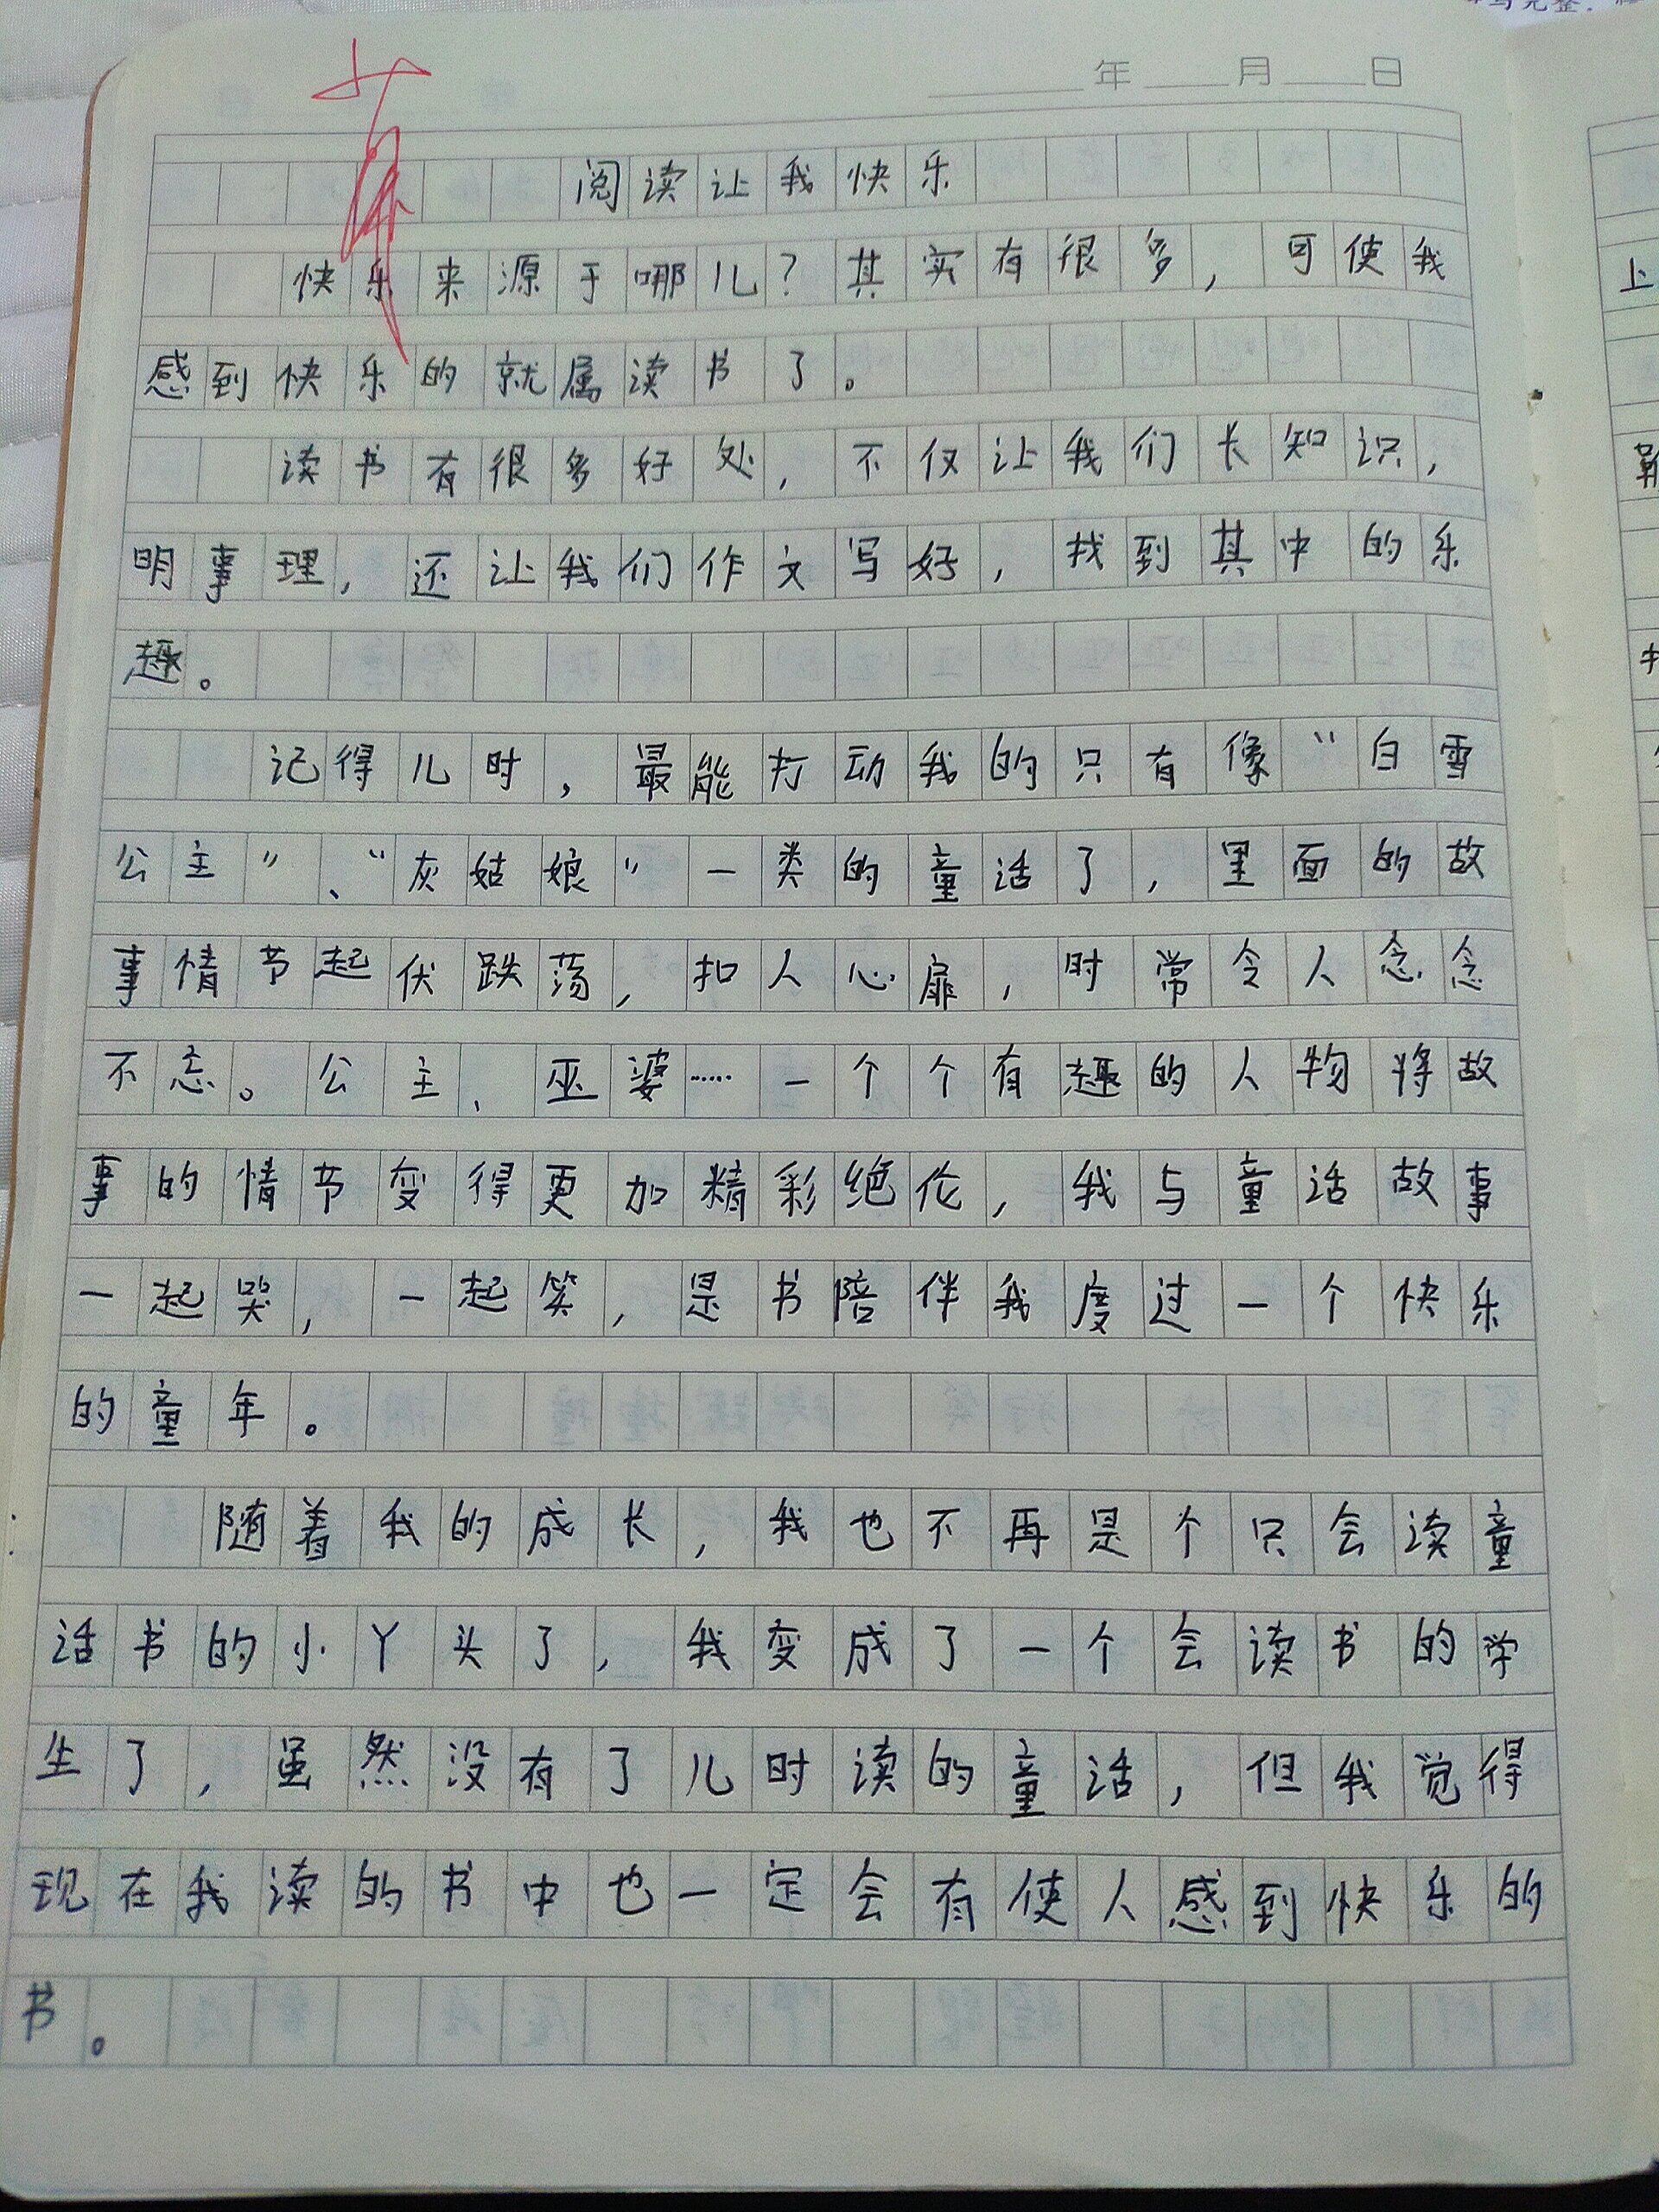 年 月 日
阅读让我快乐
快乐来源于哪儿？其实有很多，可使我
感到快乐的就属读书了。
读书有很多好处，不仅让我们长知识，
明事理，还让我们作文写好，找到其中的乐
趣。
记得儿时，最能打动我的只有像“白雪
公主”、“灰姑娘”一类的童话了，里面的故
事情节起伏跌荡，扣人心扉，时常令人念念
不忘。公主、巫婆……一个个有趣的人物将故
事的情节变得更加精彩绝伦，我与童话故事
一起哭，一起笑，是书陪伴我度过一个快乐
的童年。
随着我的成长，我也不再是个只会读童
话书的小丫头了，我变成了一个会读书的学
生了，虽然没有了儿时读的童话，但我觉得
现在我读的书中也一定会有使人感到快乐的
书。